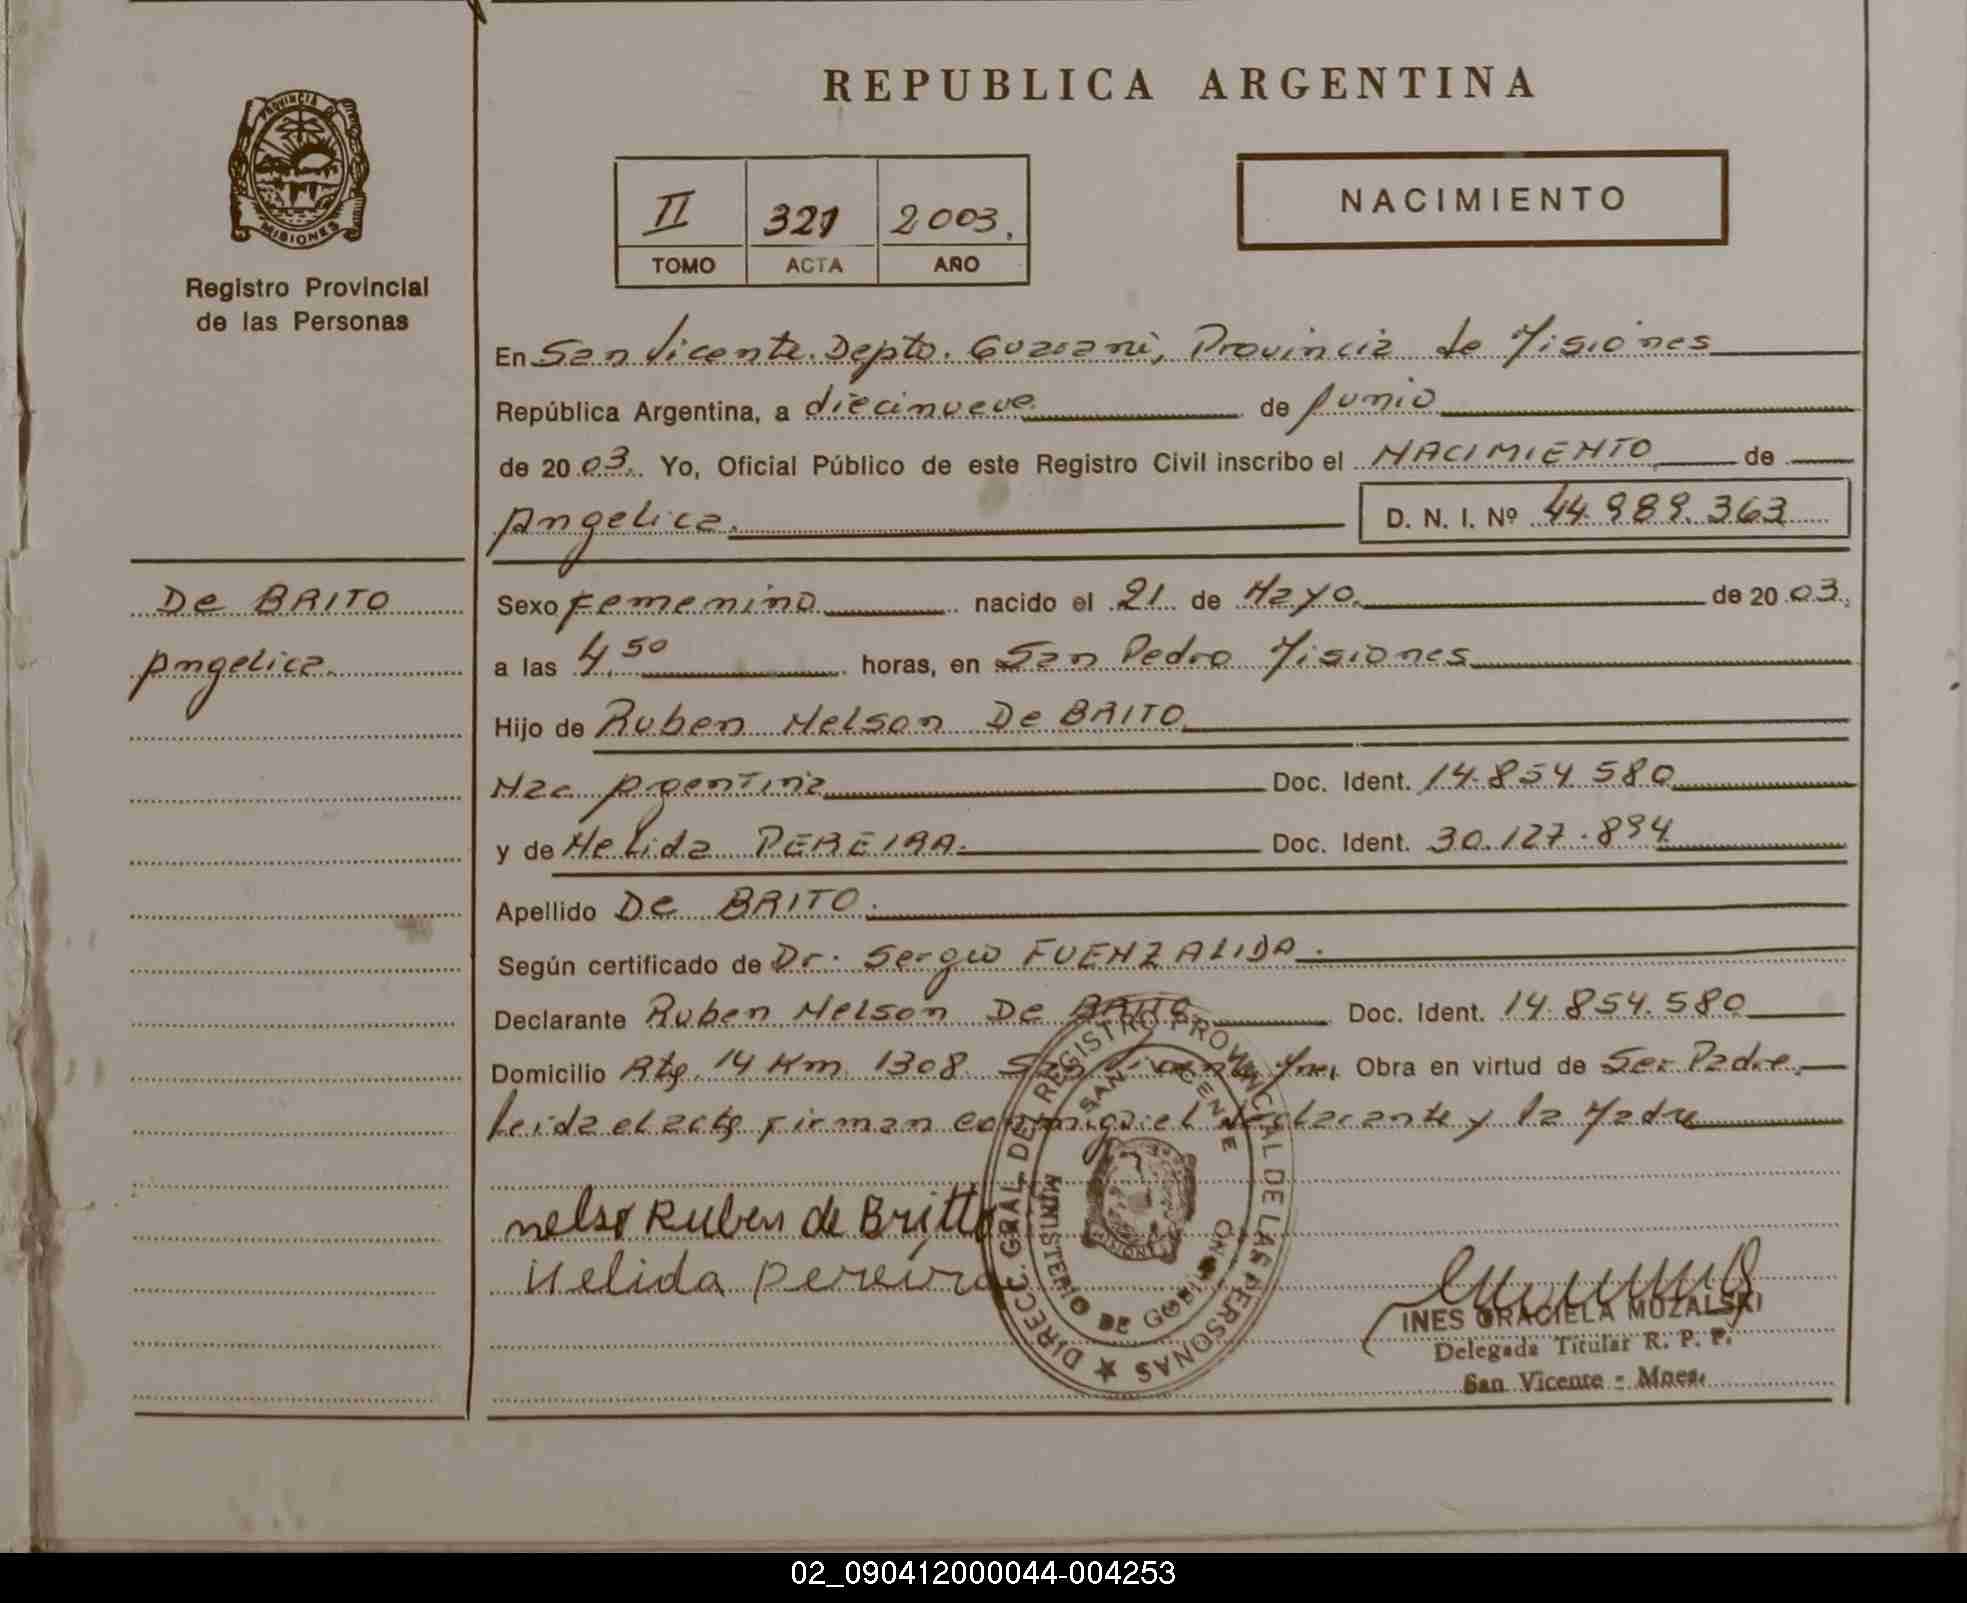 REPUBLICA ARGENTINA
PROVINCIA DE
MISIONES
Registro Provincial
de las Personas
II 321 2003.
TOMO ACTA AÑO
NACIMIENTO
En San Vicente. Depto. Guarani, Provincia de Misiones
República Argentina, a diecinueve de Junio
de 2003. Yo, Oficial Público de este Registro Civil inscribo el NACIMIENTO de
Angelica. D. N. I. Nº 44.989.363
De BRITO
Angelica.
Sexo Femenino nacido el 21 de Mayo. de 2003.
a las 4,50 horas, en San Pedro Misiones
Hijo de Ruben Nelson De BRITO
Nac Argentina Doc. Ident. 14.854.580
y de Nelida PEREIRA. Doc. Ident. 30.127.894
Apellido De BRITO.
Según certificado de Dr. Sergio FUENZALIDA.
Declarante Ruben Nelson De BRITO Doc. Ident. 14.854.580
Domicilio Rta. 14 Km. 1308 San Vicente Mnes, Obra en virtud de Ser Padre,
leida el acta firman conmigo el declarante y la Madre
nelso Ruben de Britto
Nelida Pereira
DIRECC. GRAL. DEL REGISTRO PROVINCIAL DE LAS PERSONAS
SAN VICENTE
MINISTERIO DE GOBIERNO
MISIONES
INES GRACIELA MUZALSKI
Delegada Titular R. P. P.
San Vicente - Mnes.
02_090412000044-004253